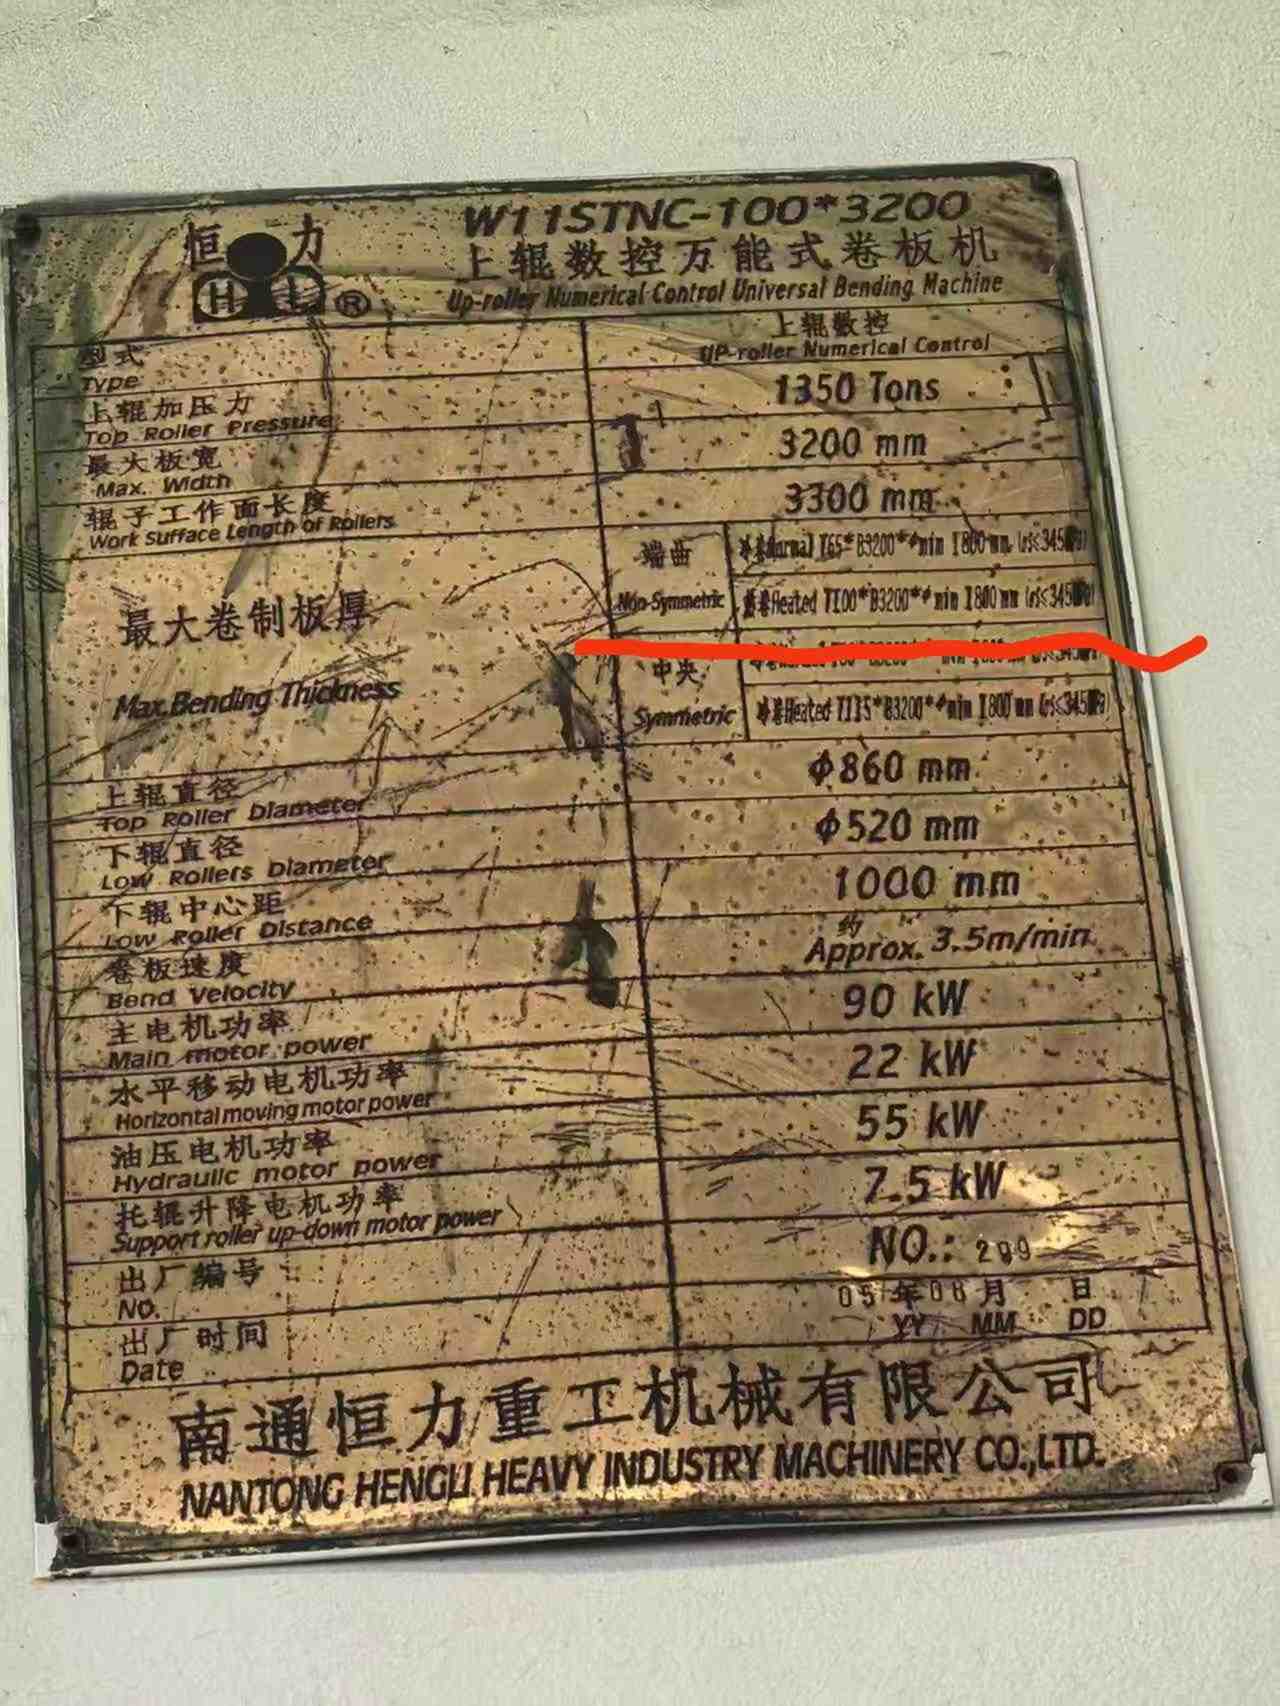 恒力
HL®
W11STNC-100*3200
上辊数控万能式卷板机
Up-roller Numerical Control Universal Bending Machine
型式
Type
上辊数控
UP-roller Numerical Control
上辊加压力
Top Roller Pressure
1350 Tons
最大板宽
Max. Width
3200 mm
辊子工作面长度
Work Surface Length of Rollers
3300 mm
最大卷制板厚
Max.Bending Thickness
端曲
Non-Symmetric
冷卷Normal T65*B3200*φmin1800mm (σs≤345MPa)
热卷Heated T100*B3200*φmin1800mm (σs≤345MPa)
中央
Symmetric
冷卷
卷Heated T135*B3200*φmin1800mm (σs≤345MPa)
上辊直径
Top Roller Diameter
Φ860 mm
下辊直径
Low Rollers Diameter
Φ520 mm
下辊中心距
Low Roller Distance
1000 mm
卷板速度
Bend Velocity
约
Approx. 3.5m/min
主电机功率
Main motor power
90 kW
水平移动电机功率
Horizontal moving motor power
22 kW
油压电机功率
Hydraulic motor power
55 kW
托辊升降电机功率
Support roller up-down motor power
7.5 kW
出厂编号
NO.
NO.: 299
出厂时间
Date
05年08月 日
YY MM DD
南通恒力重工机械有限公司
NANTONG HENGLI HEAVY INDUSTRY MACHINERY CO.,LTD.